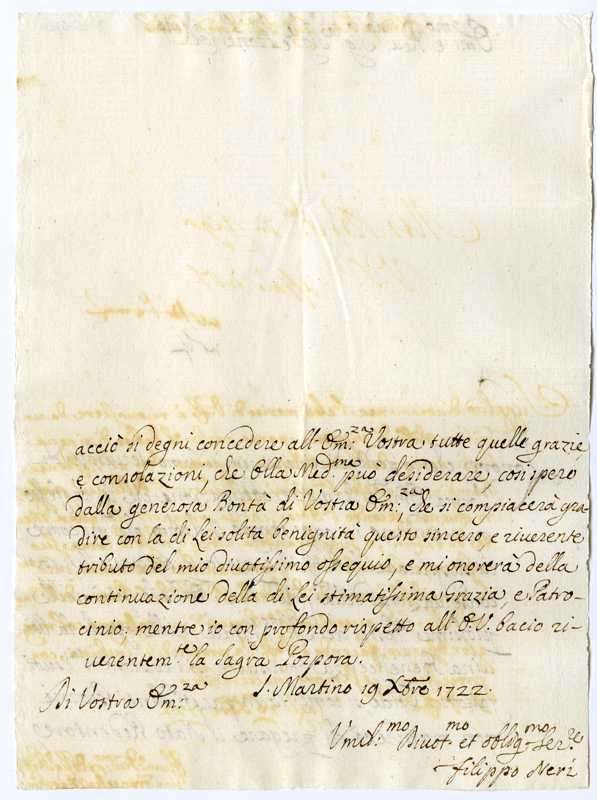 acciò si degni concedere all'Em:za Vostra tutte quelle grazie
e consolazioni, che Ella Med:me può desiderare, così spero
dalla generosa Bontà di Vostra Em:za, che si compiacerà gra-
dire con la di Lei solita benignità questo sincero, e riverente
tributo del mio divotissimo ossequio, e mi onorerà della
continuazione della di Lei stimatissima Grazia, e Patro-
cinio: mentre io con profondo rispetto all'E.V. bacio ri-
verentem:te la Sagra Porpora.
Di Vostra Em:za S. Martino 19 Xbre 1722.
Umil:mo Divot:mo et obblig:mo Ser:re
Filippo Neri